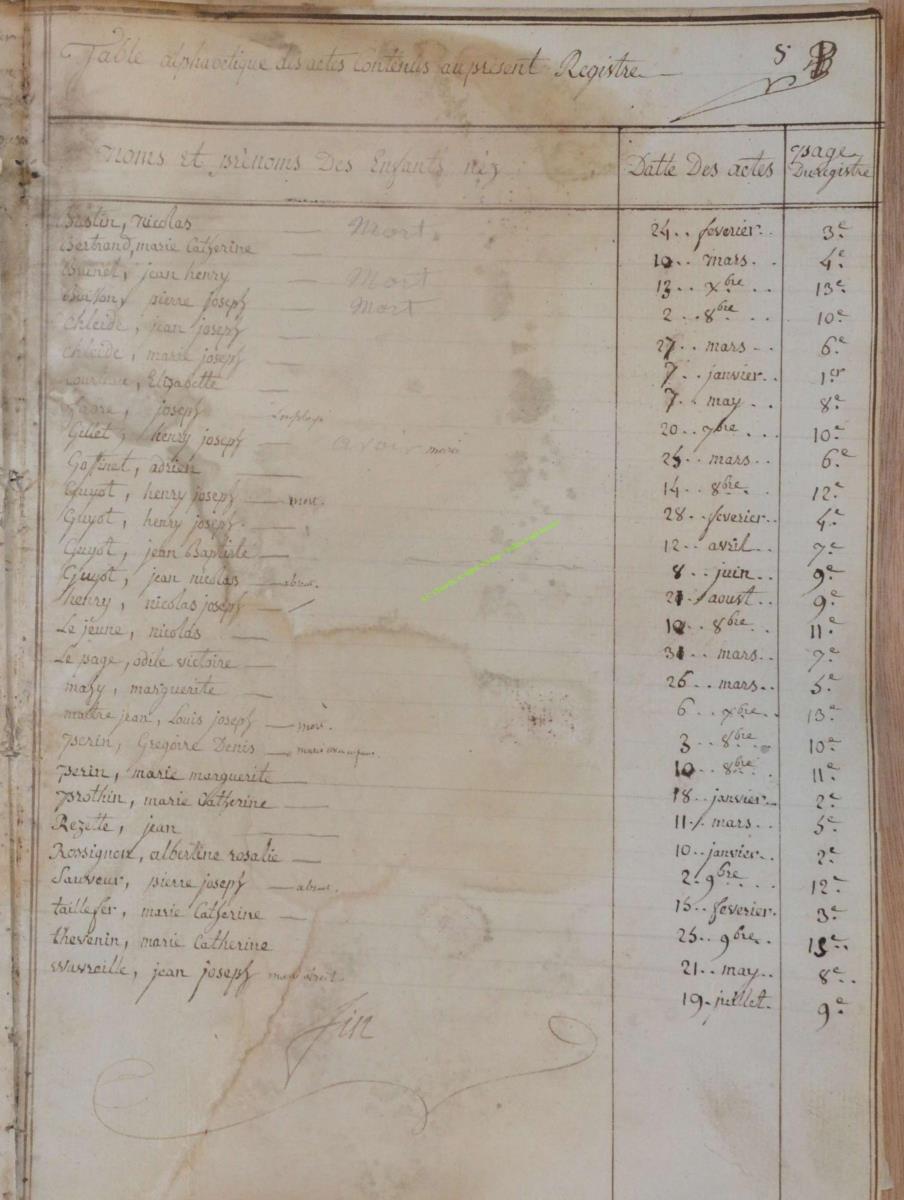 Table alphabetique des actes Contenus au présent Registre 5
Noms et prénoms Des Enfants néz Datte Des actes page Du registre
Bastin, nicolas — Mort. 24.. feverier.. 3e
Bertrand, marie Catherine — 10.. mars.. 4e
Brunet, jean henry — Mort 13.. xbre.. 13e
pierre joseph — Mort 2.. 8bre.. 10e
Chleide, jean joseph — 27.. mars.. 6e
Chleide, marie joseph — 7.. janvier.. 1er
Elizabette — 7.. may.. 8e
joseph — 20.. 7bre... 10e
Gillet, henry joseph — avoir marié 25.. mars.. 6e
Gofinet, adrien — 14.. 8bre.. 12e
Guyot, henry joseph — mort. 28.. feverier.. 4e
Guyot, henry joseph. — 12.. avril.. 7e
Guyot, jean Baptiste — 8.. juin.. 9e
Guyot, jean nicolas — absent. 21.. aoust.. 9e
henry, nicolas joseph — 10.. 8bre.. 11e
Le jeune, nicolas — 31.. mars.. 7e
Le page, odile victoire — 26.. mars.. 5e
mary, marguerite — 6.. xbre.. 13e
maitre jean, Louis joseph — mort. 3.. 8bre. 10e
perin, Gregoire Denis — 10.. 8bre. 11e
perin, marie marguerite — 18.. janvier.. 2e
prothin, marie Catherine — 11.. mars.. 5e
Rezette, jean — 10.. janvier.. 2e
Rossignon, albertine rosalie — 2.. 9bre... 12e
Sauveur, pierre joseph — absent. 15.. feverier. 3e
taillefer, marie Catherine — 25.. 9bre.. 13e
thevenin, marie Catherine 21.. may.. 8e
wavreille, jean joseph 19.. juillet. 9e
fin